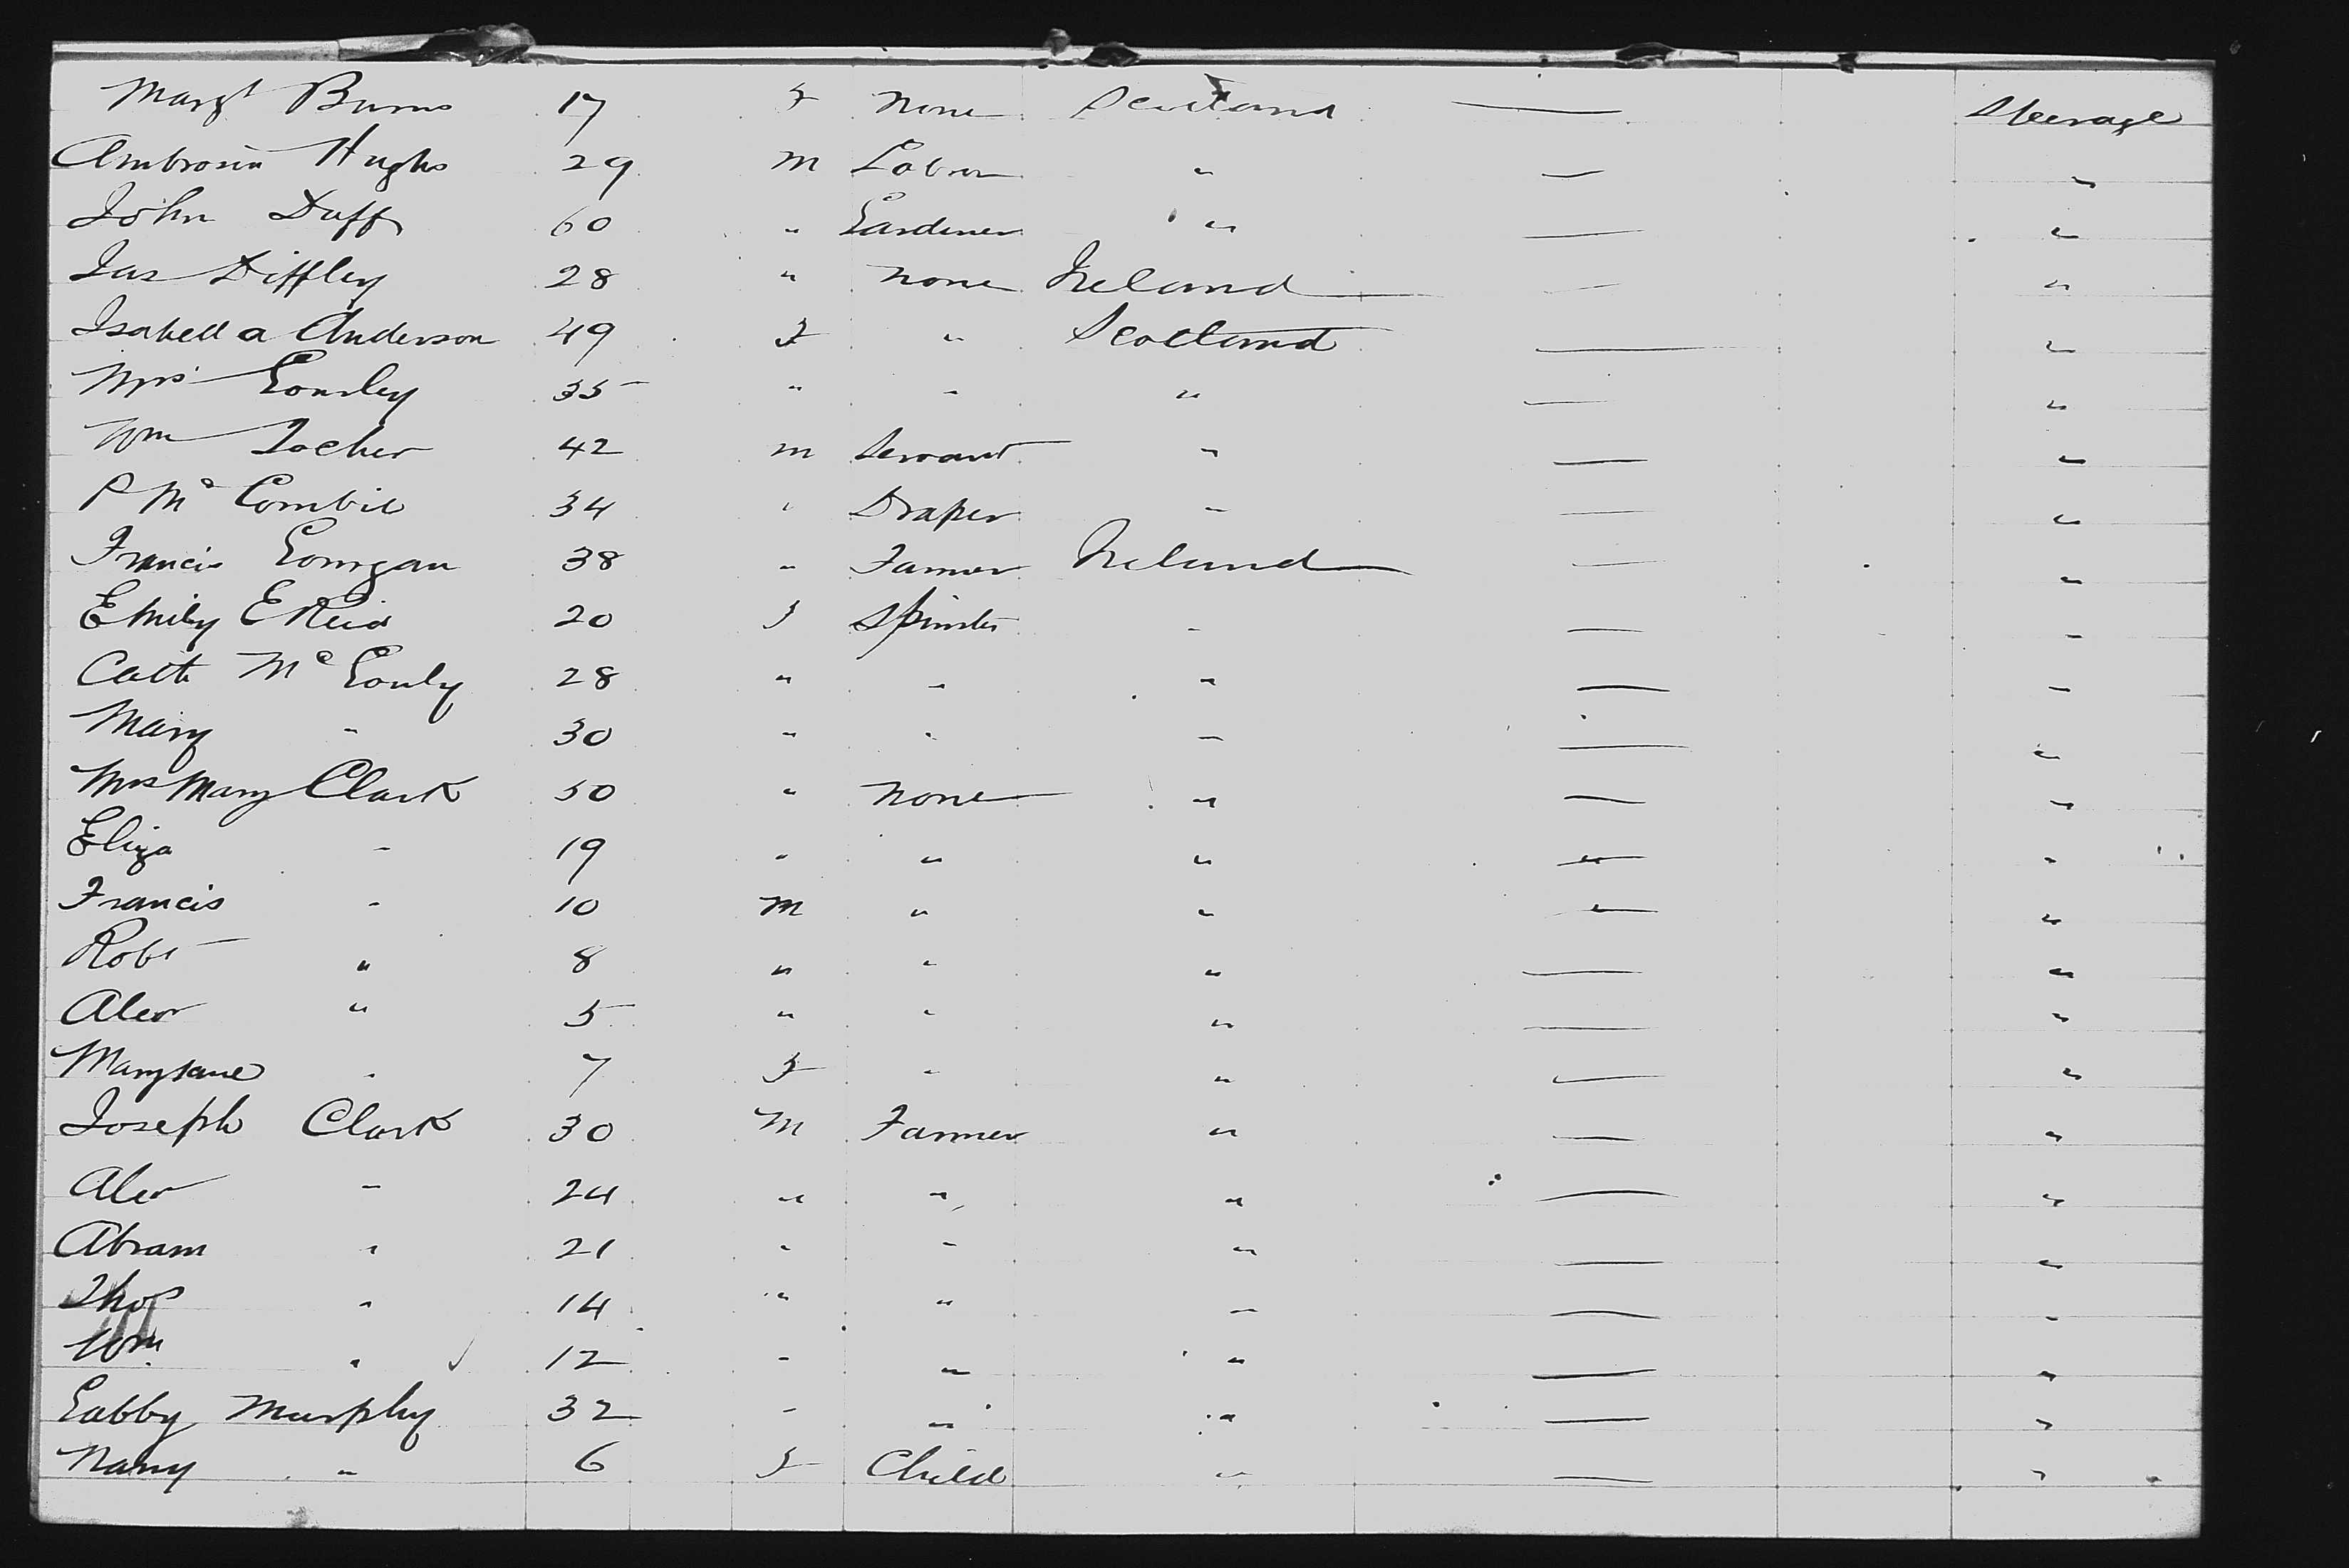 Margt Burns 17 F None Scotland — Steerage
Hughs 29 M Labor " — "
John Duff 60 " Gardener " — "
Jas Diffley 28 " None Ireland — "
Isabella Anderson 49 F " Scotland — "
Mrs Gourley 35 " " " — "
Wm Locher 42 M Servant " — "
P Mc Combie 34 " Draper " — "
Francis 38 " Farmer Ireland — "
Emily E Reid 20 F Spinster " — "
Cath Mc 28 " " " — "
Mary " 30 " " " — "
Mrs Mary Clark 50 " None " — "
Eliza " 19 " " " — "
Francis " 10 M " " — "
Robt " 8 " " " — "
Alex " 5 " " " — "
Mary Jane " 7 F " " — "
Joseph Clark 30 M Farmer " — "
Alex " 24 " " " — "
Abram " 21 " " " — "
Thos " 14 " " " — "
Wm " 12 " " " — "
Gabby Murphy 32 " " " — "
" 6 F Child " — "